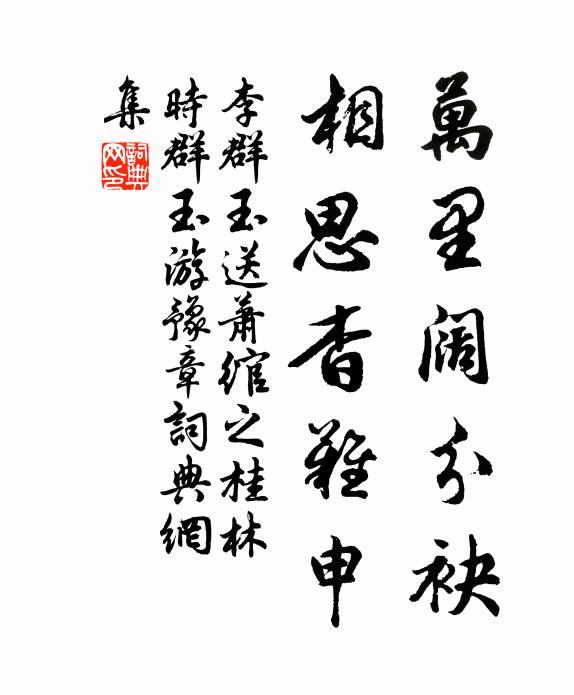 萬里闊分袂
相思杳難申
李群玉送蕭綰之桂林
時群玉游豫章詞典網
集
詞典网印